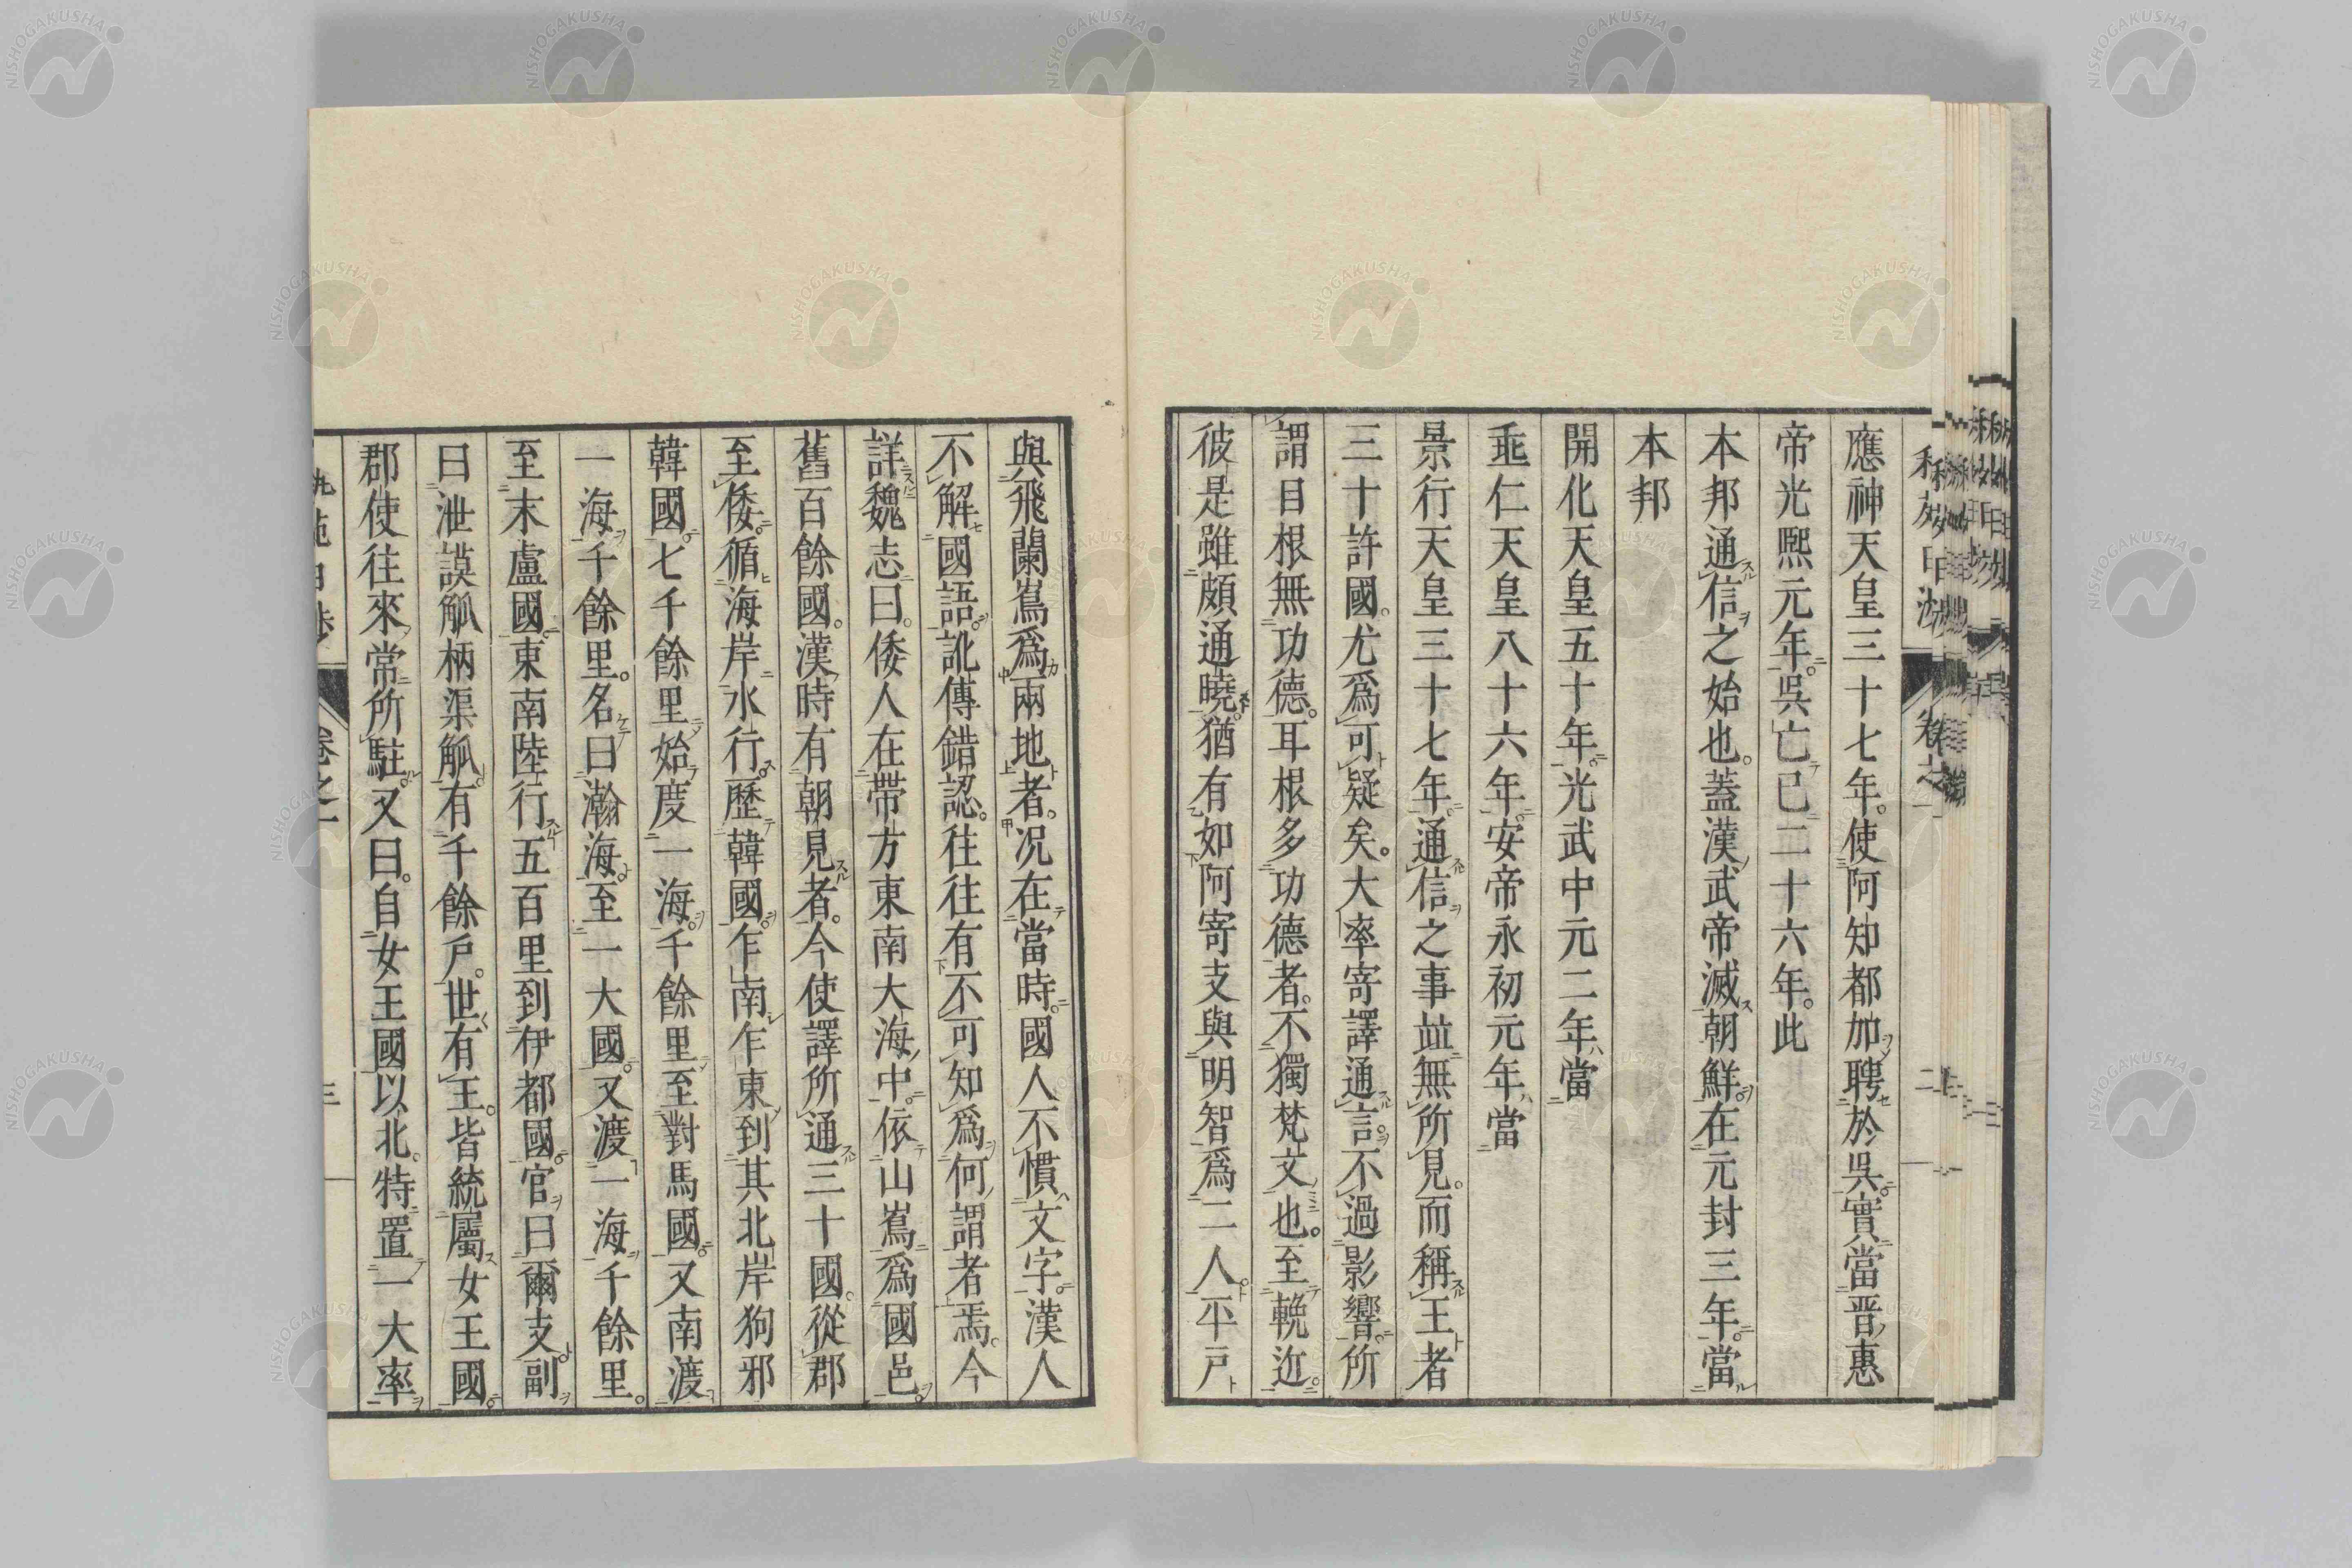 應神天皇三十七年。使阿知都加聘於吳。實當晋惠
帝光熙元年。吳亡已二十六年。此
本邦通信之始也。蓋漢武帝滅朝鮮。在元封三年。當
本邦
開化天皇五十年。光武中元二年。當
垂仁天皇八十六年。安帝永初元年。當
景行天皇三十七年。通信之事並無所見。而稱王者
三十許國。尤爲可疑矣。大率寄譯通言。不過影響。所
謂目根無功德。耳根多功德者。不獨梵文也。至輓近。
彼是雖頗通曉。猶有如阿寄支與明智爲二人。平戸
與飛蘭嶌爲兩地者。况在當時。國人不慣文字。漢人
不解國語。訛傳錯認。往往有不可知爲何謂者焉。今
詳魏志曰。倭人在帶方東南大海中。依山嶌爲國邑。
舊百餘國。漢時有朝見者。今使譯所通三十國。從郡
至倭。循海岸水行。歷韓國。乍南乍東。到其北岸狗邪
韓國。七千餘里。始度一海。千餘里。至對馬國。又南渡
一海千餘里。名曰瀚海。至一大國。又渡一海千餘里。
至末盧國。東南陸行五百里。到伊都國。官曰爾支。副
曰泄謨觚柄渠觚。有千餘戶。世有王。皆統屬女王國。
郡使往來常所駐。又曰。自女王國以北。特置一大率
卷之一
三
NISHOGAKUSHA